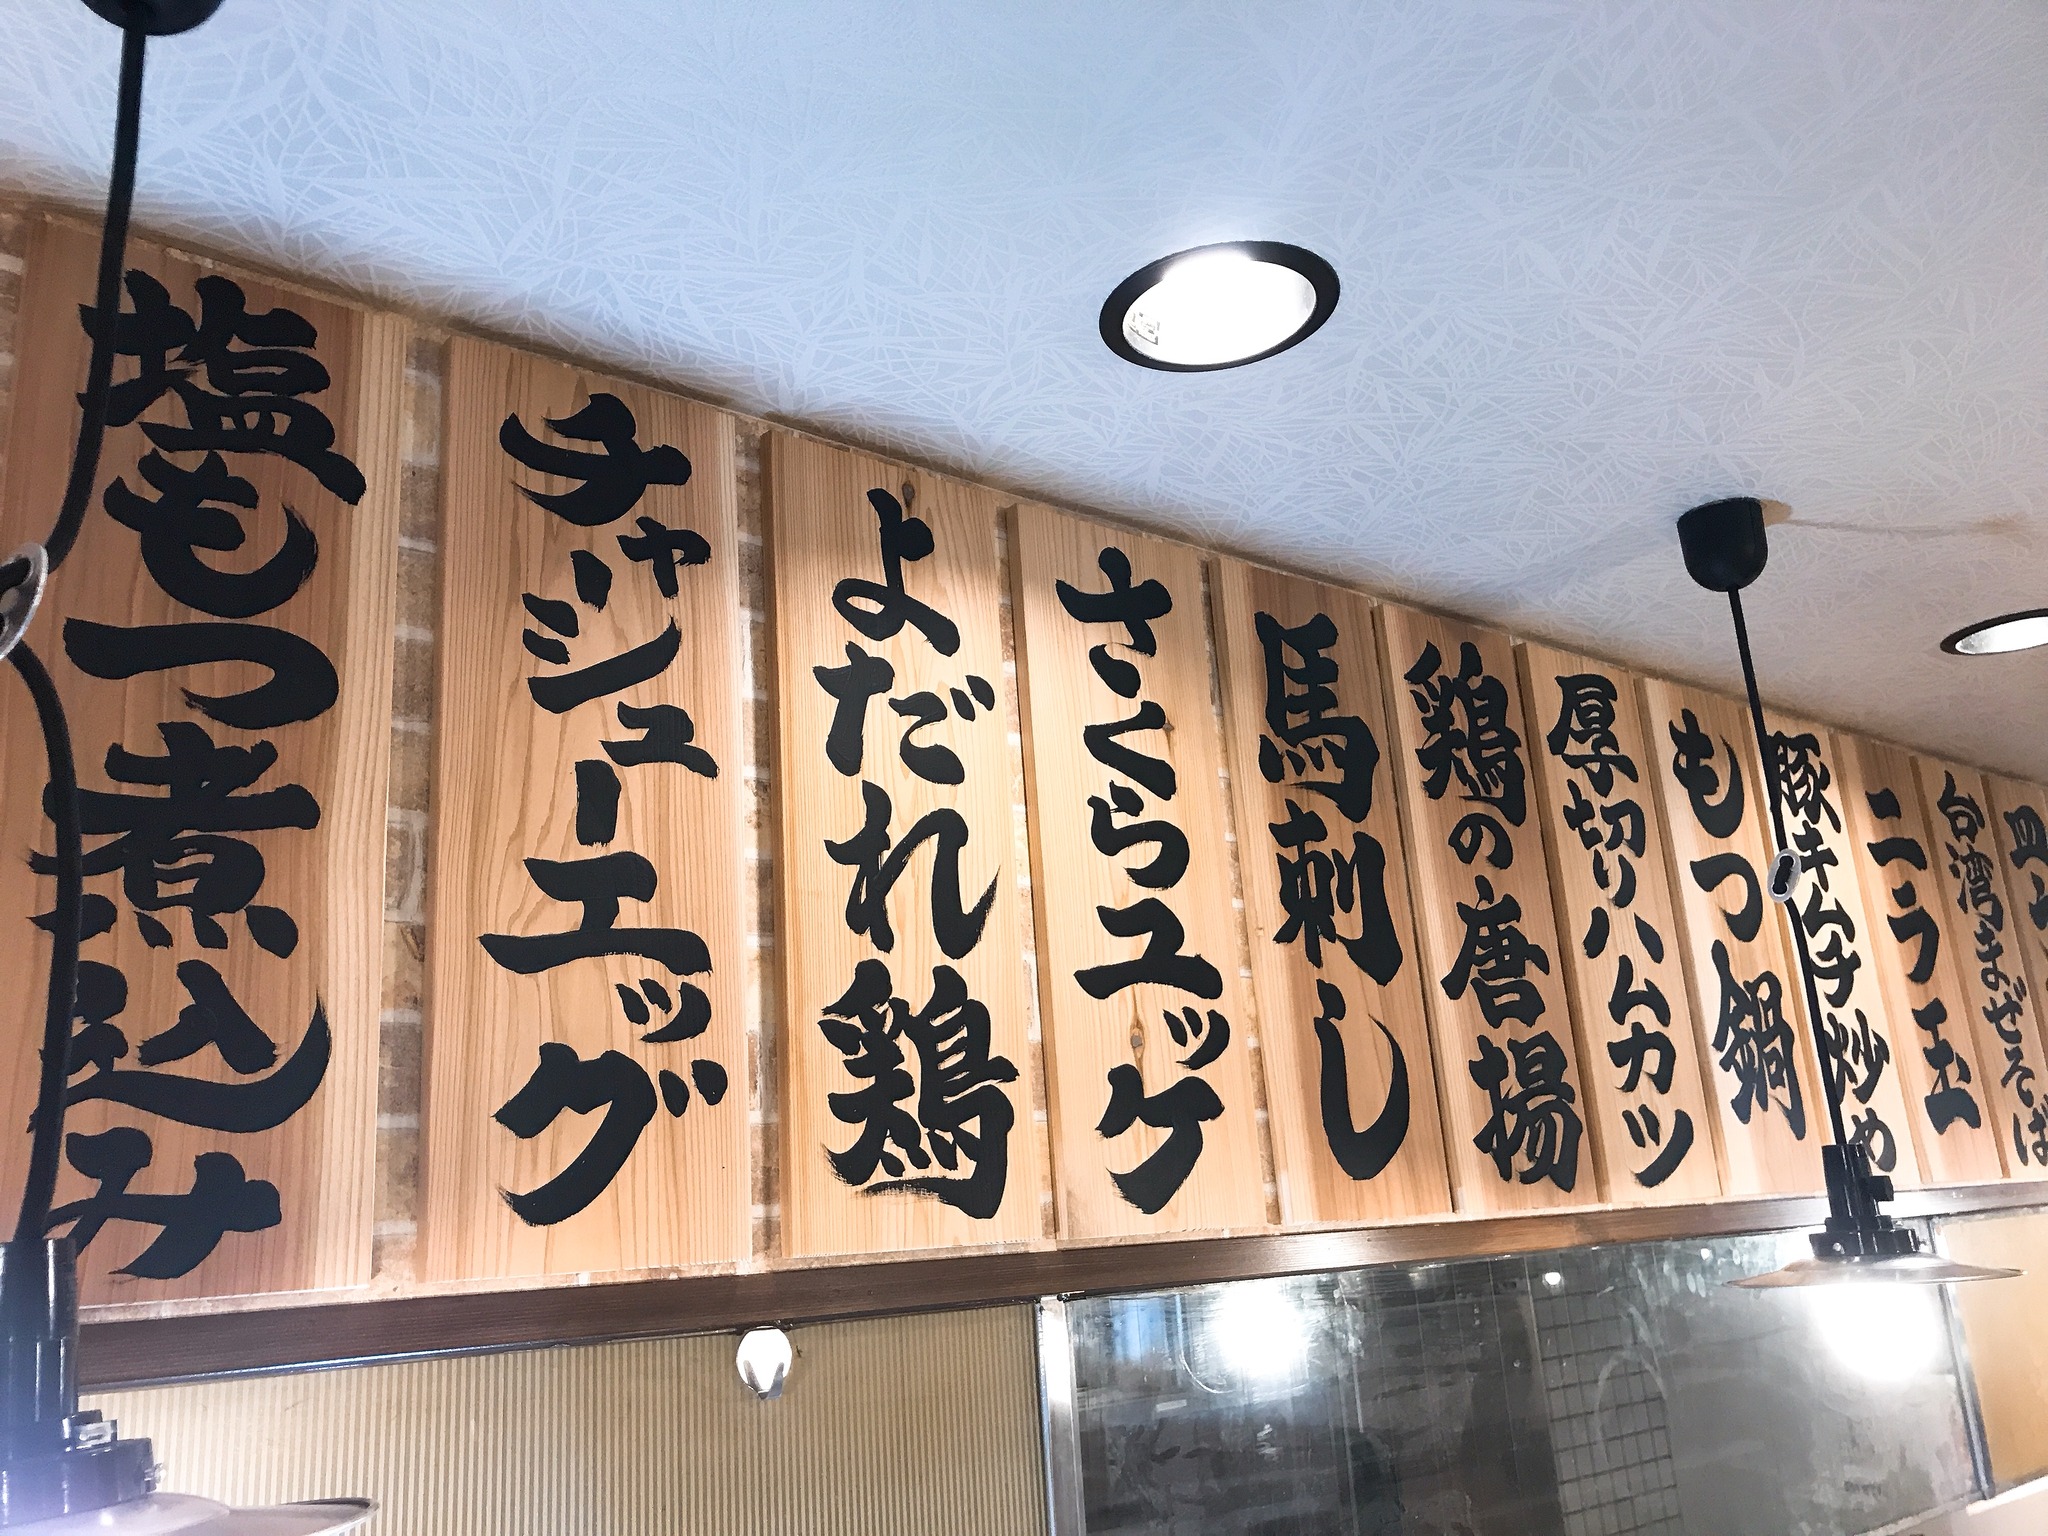 台湾まぜそば
ニラ玉
豚キムチ炒め
もつ鍋
厚切りハムカツ
鶏の唐揚
馬刺し
さくらユッケ
よだれ鶏
チャシューエッグ
塩もつ煮込み